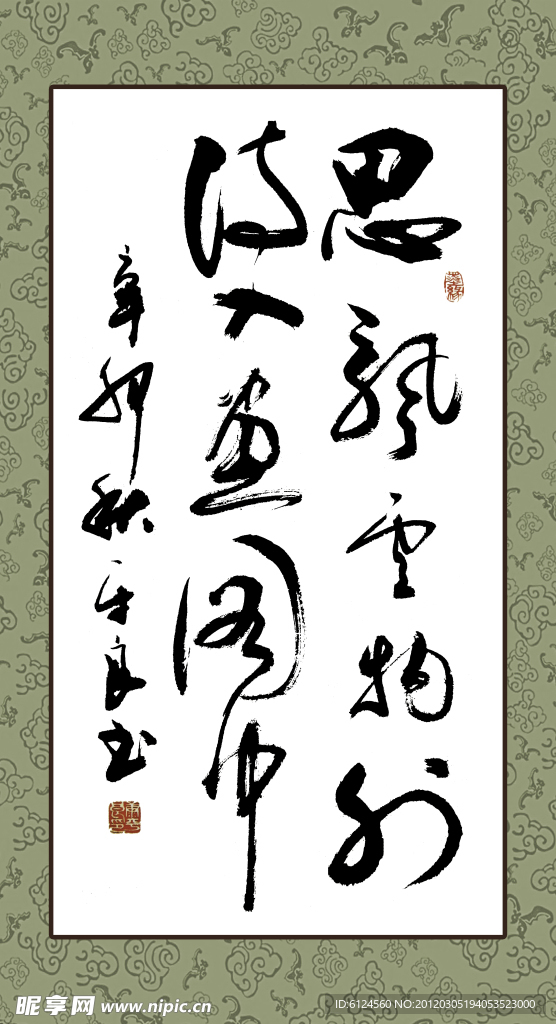 思飘云物外
诗入画图中
辛卯秋平良书
昵享网 www.nipic.cn
ID:6124560 NO:20120305194053523000